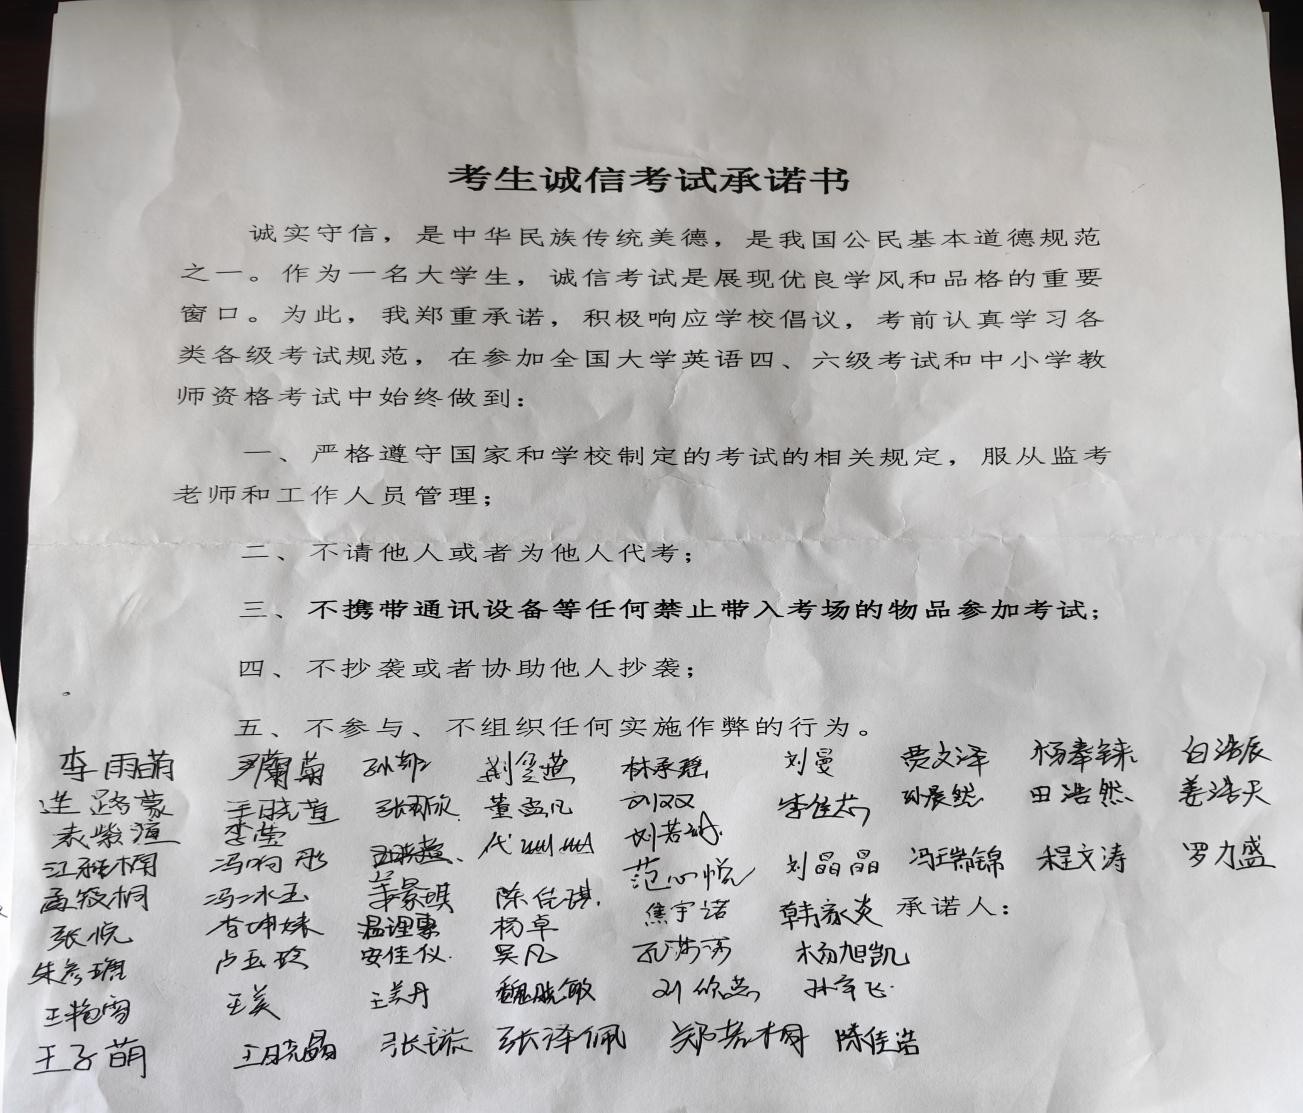 考生诚信考试承诺书
诚实守信，是中华民族传统美德，是我国公民基本道德规范
之一。作为一名大学生，诚信考试是展现优良学风和品格的重要
窗口。为此，我郑重承诺，积极响应学校倡议，考前认真学习各
类各级考试规范，在参加全国大学英语四、六级考试和中小学教
师资格考试中始终做到：
一、严格遵守国家和学校制定的考试的相关规定，服从监考
老师和工作人员管理；
二、不请他人或者为他人代考；
三、不携带通讯设备等任何禁止带入考场的物品参加考试；
四、不抄袭或者协助他人抄袭；
五、不参与、不组织任何实施作弊的行为。
李雨萌 尹蘭菊 林承瑶 刘曼 贾文泽 杨奉铼 白浩辰
董孟凡 刘双双 李佳茹 孙晨然 田浩然 姜浩天
袁紫渲 李莹
范心悦 刘晶晶 冯瑞锦 程文涛 罗力盛
孟筱桐 冯冰玉 李景琪 陈佳琪 焦宇诺 韩家炎 承诺人：
张悦 李坤妹 温理惠 杨卓
卢玉玲 安佳仪 吴凡 孔莎莎 杨旭凯
王艳雪 王美 王美丹 魏晓敏 孙宇飞
王子萌 王晓晶 张璇 张译佩 郑若桐 陈佳浩